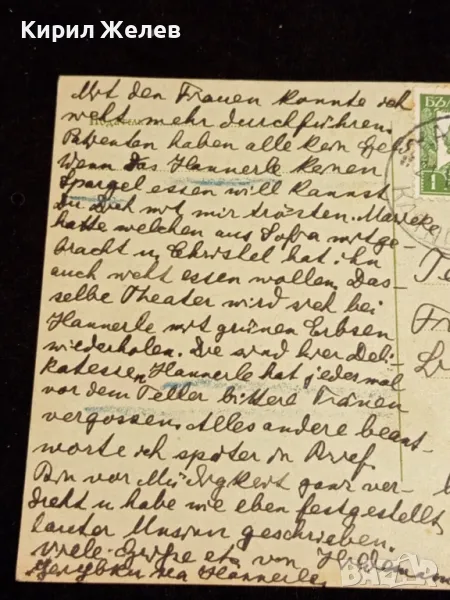 Кирил Желев
Mit den Frauen konnte ich
nicht mehr durchführen.
Patienten haben alle kein Geld
Wenn das Hannerle keinen
Spargel essen will kannst
Du Dich mit mir trösten. Marieke
hatte welchen aus Sofia mitge-
bracht u. Christel hat ihn
auch nicht essen wollen. Das-
selbe Theater wird sich bei
Hannerle mit grünen Erbsen
wiederholen. Die sind hier Deli-
katessen, Hannerle hat jedesmal
vor dem Teller bittere Tränen
vergossen. Alles andere beant-
worte ich später im Brief.
Bin vor Müdigkeit ganz ver-
dreht u habe wie eben festgestellt
lauter Unsinn geschrieben.
Viele Grüße etc von
Целувки на Hannerle.
1
bazar